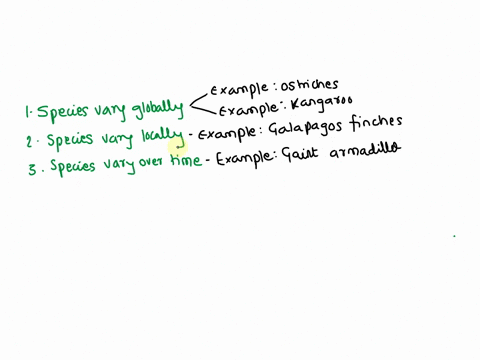 Example : ostriches
1. Species vary globally
Example : Kangaroo
2. Species vary locally - Example: Galapagos finches
3. Species vary over time - Example: Gaint armadillo